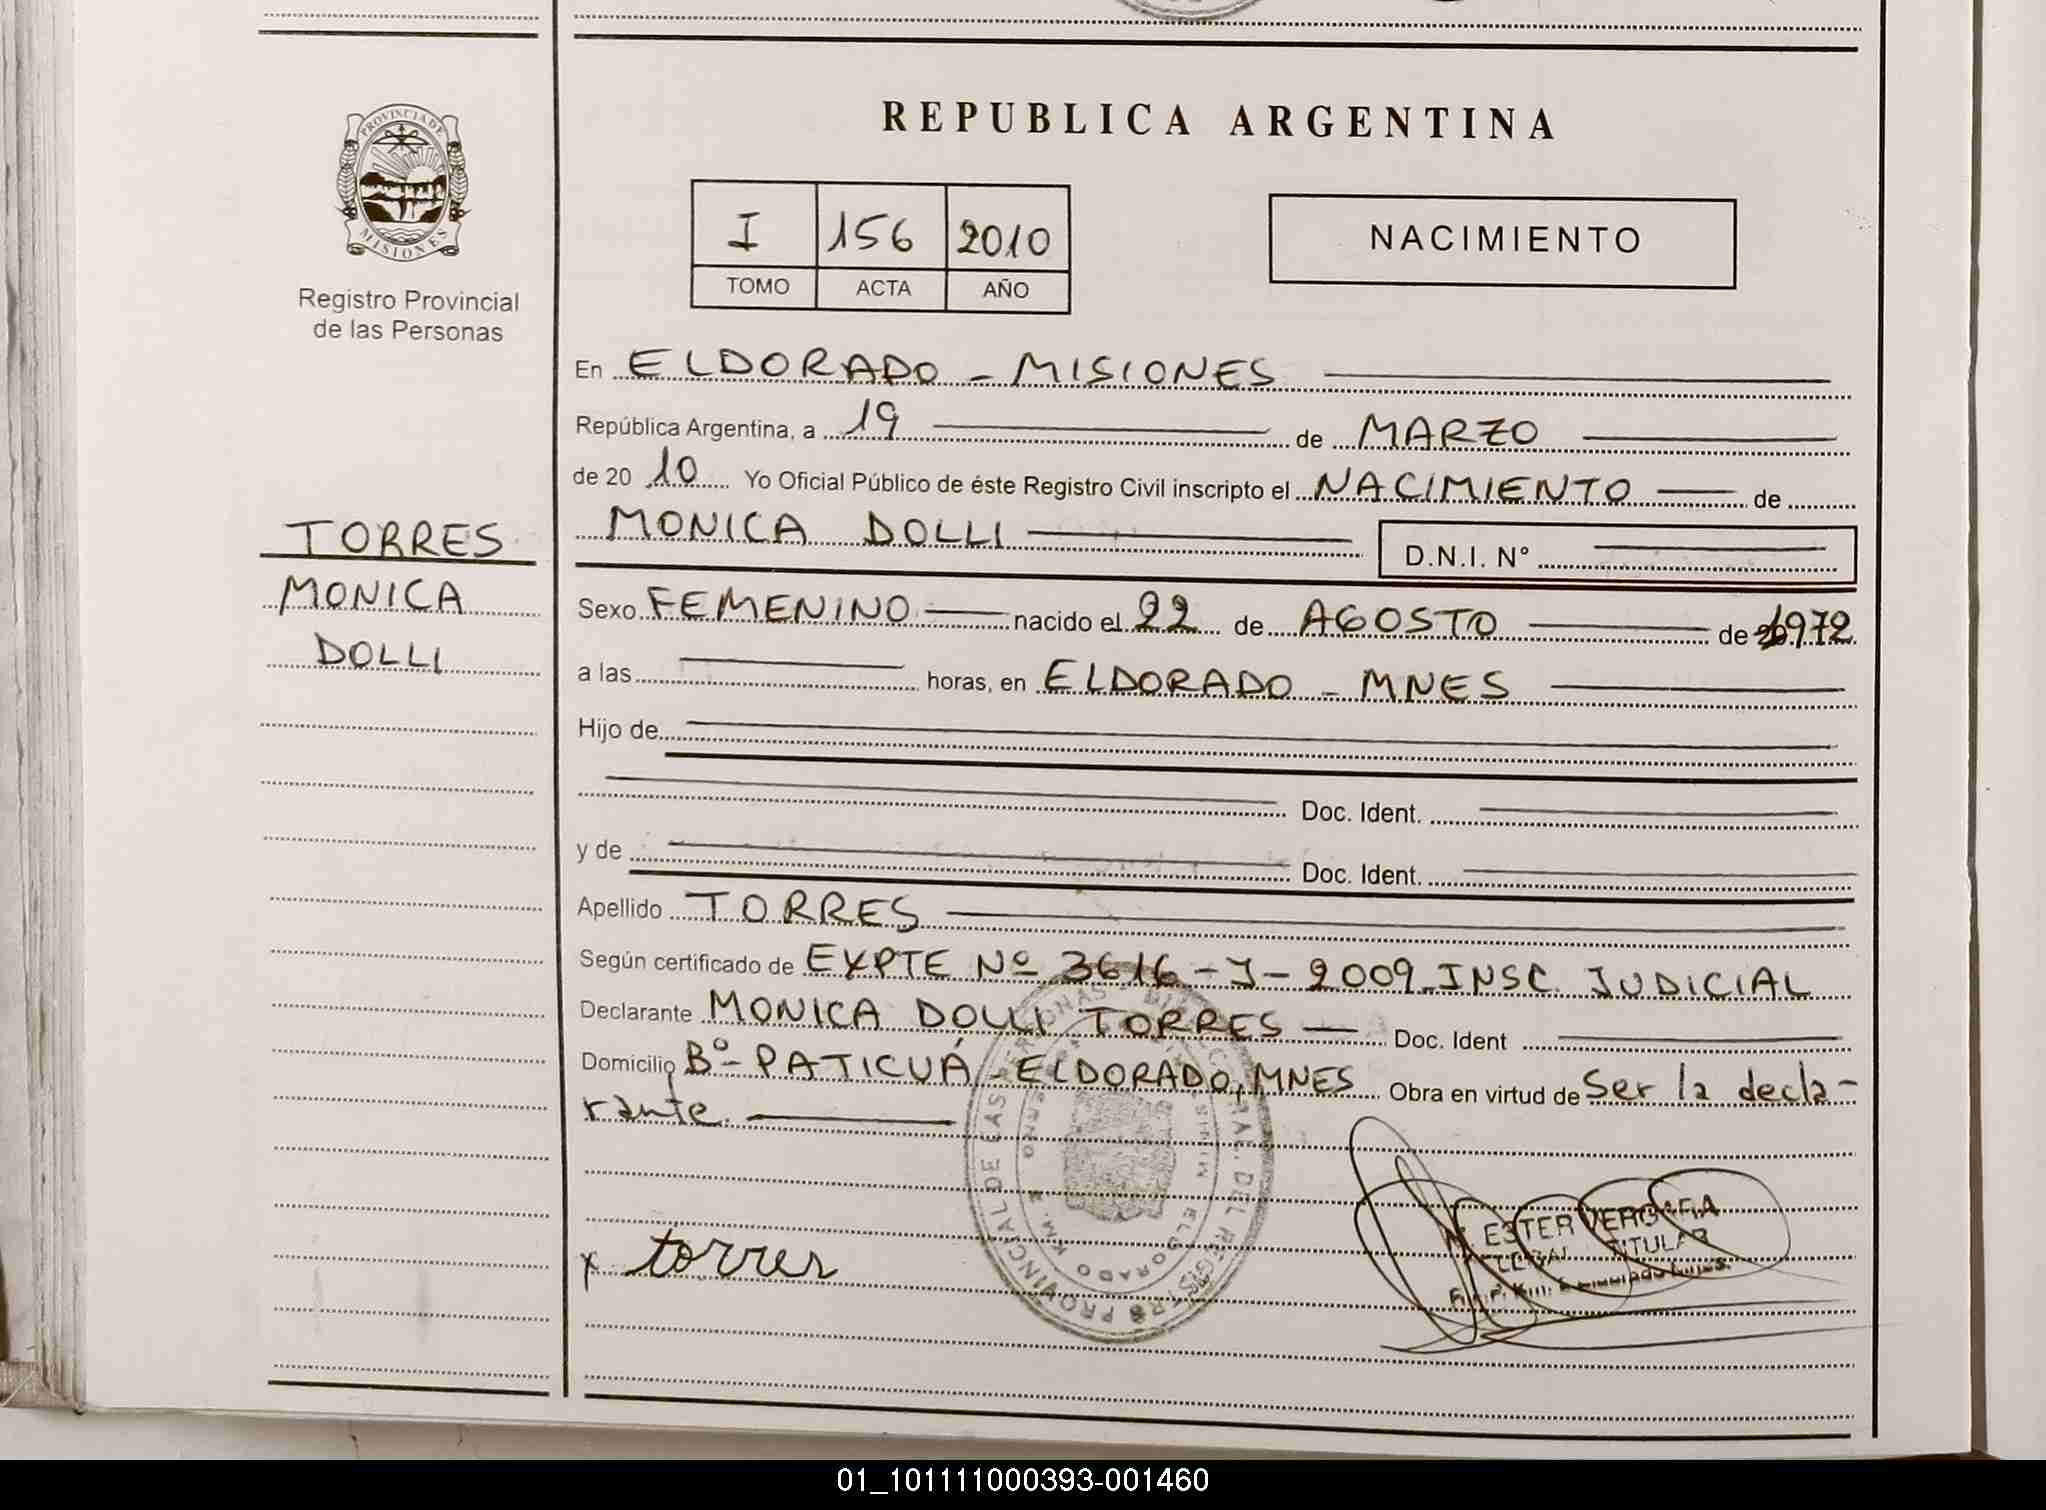 REPUBLICA ARGENTINA
PROVINCIA DE
MISIONES
Registro Provincial
de las Personas
I 156 2010
TOMO ACTA AÑO
NACIMIENTO
En ELDORADO - MISIONES
República Argentina, a 19 de MARZO
de 20 10 Yo Oficial Público de éste Registro Civil inscripto el NACIMIENTO de
MONICA DOLLI D.N.I. N°
TORRES
MONICA
DOLLI
Sexo FEMENINO nacido el 22 de AGOSTO de 1972
a las horas, en ELDORADO - MNES
Hijo de
Doc. Ident.
y de Doc. Ident.
Apellido TORRES
Según certificado de EXPTE Nº 3616-J-2009_INSC. JUDICIAL
Declarante MONICA DOLLI TORRES Doc. Ident
Domicilio Bº- PATICUÁ - ELDORADO, MNES Obra en virtud de Ser la decla-
rante.
x torres
PROVINCIAL DE LAS PERSONAS
ELDORADO KM.
ESTER
TITULAR
01_101111000393-001460